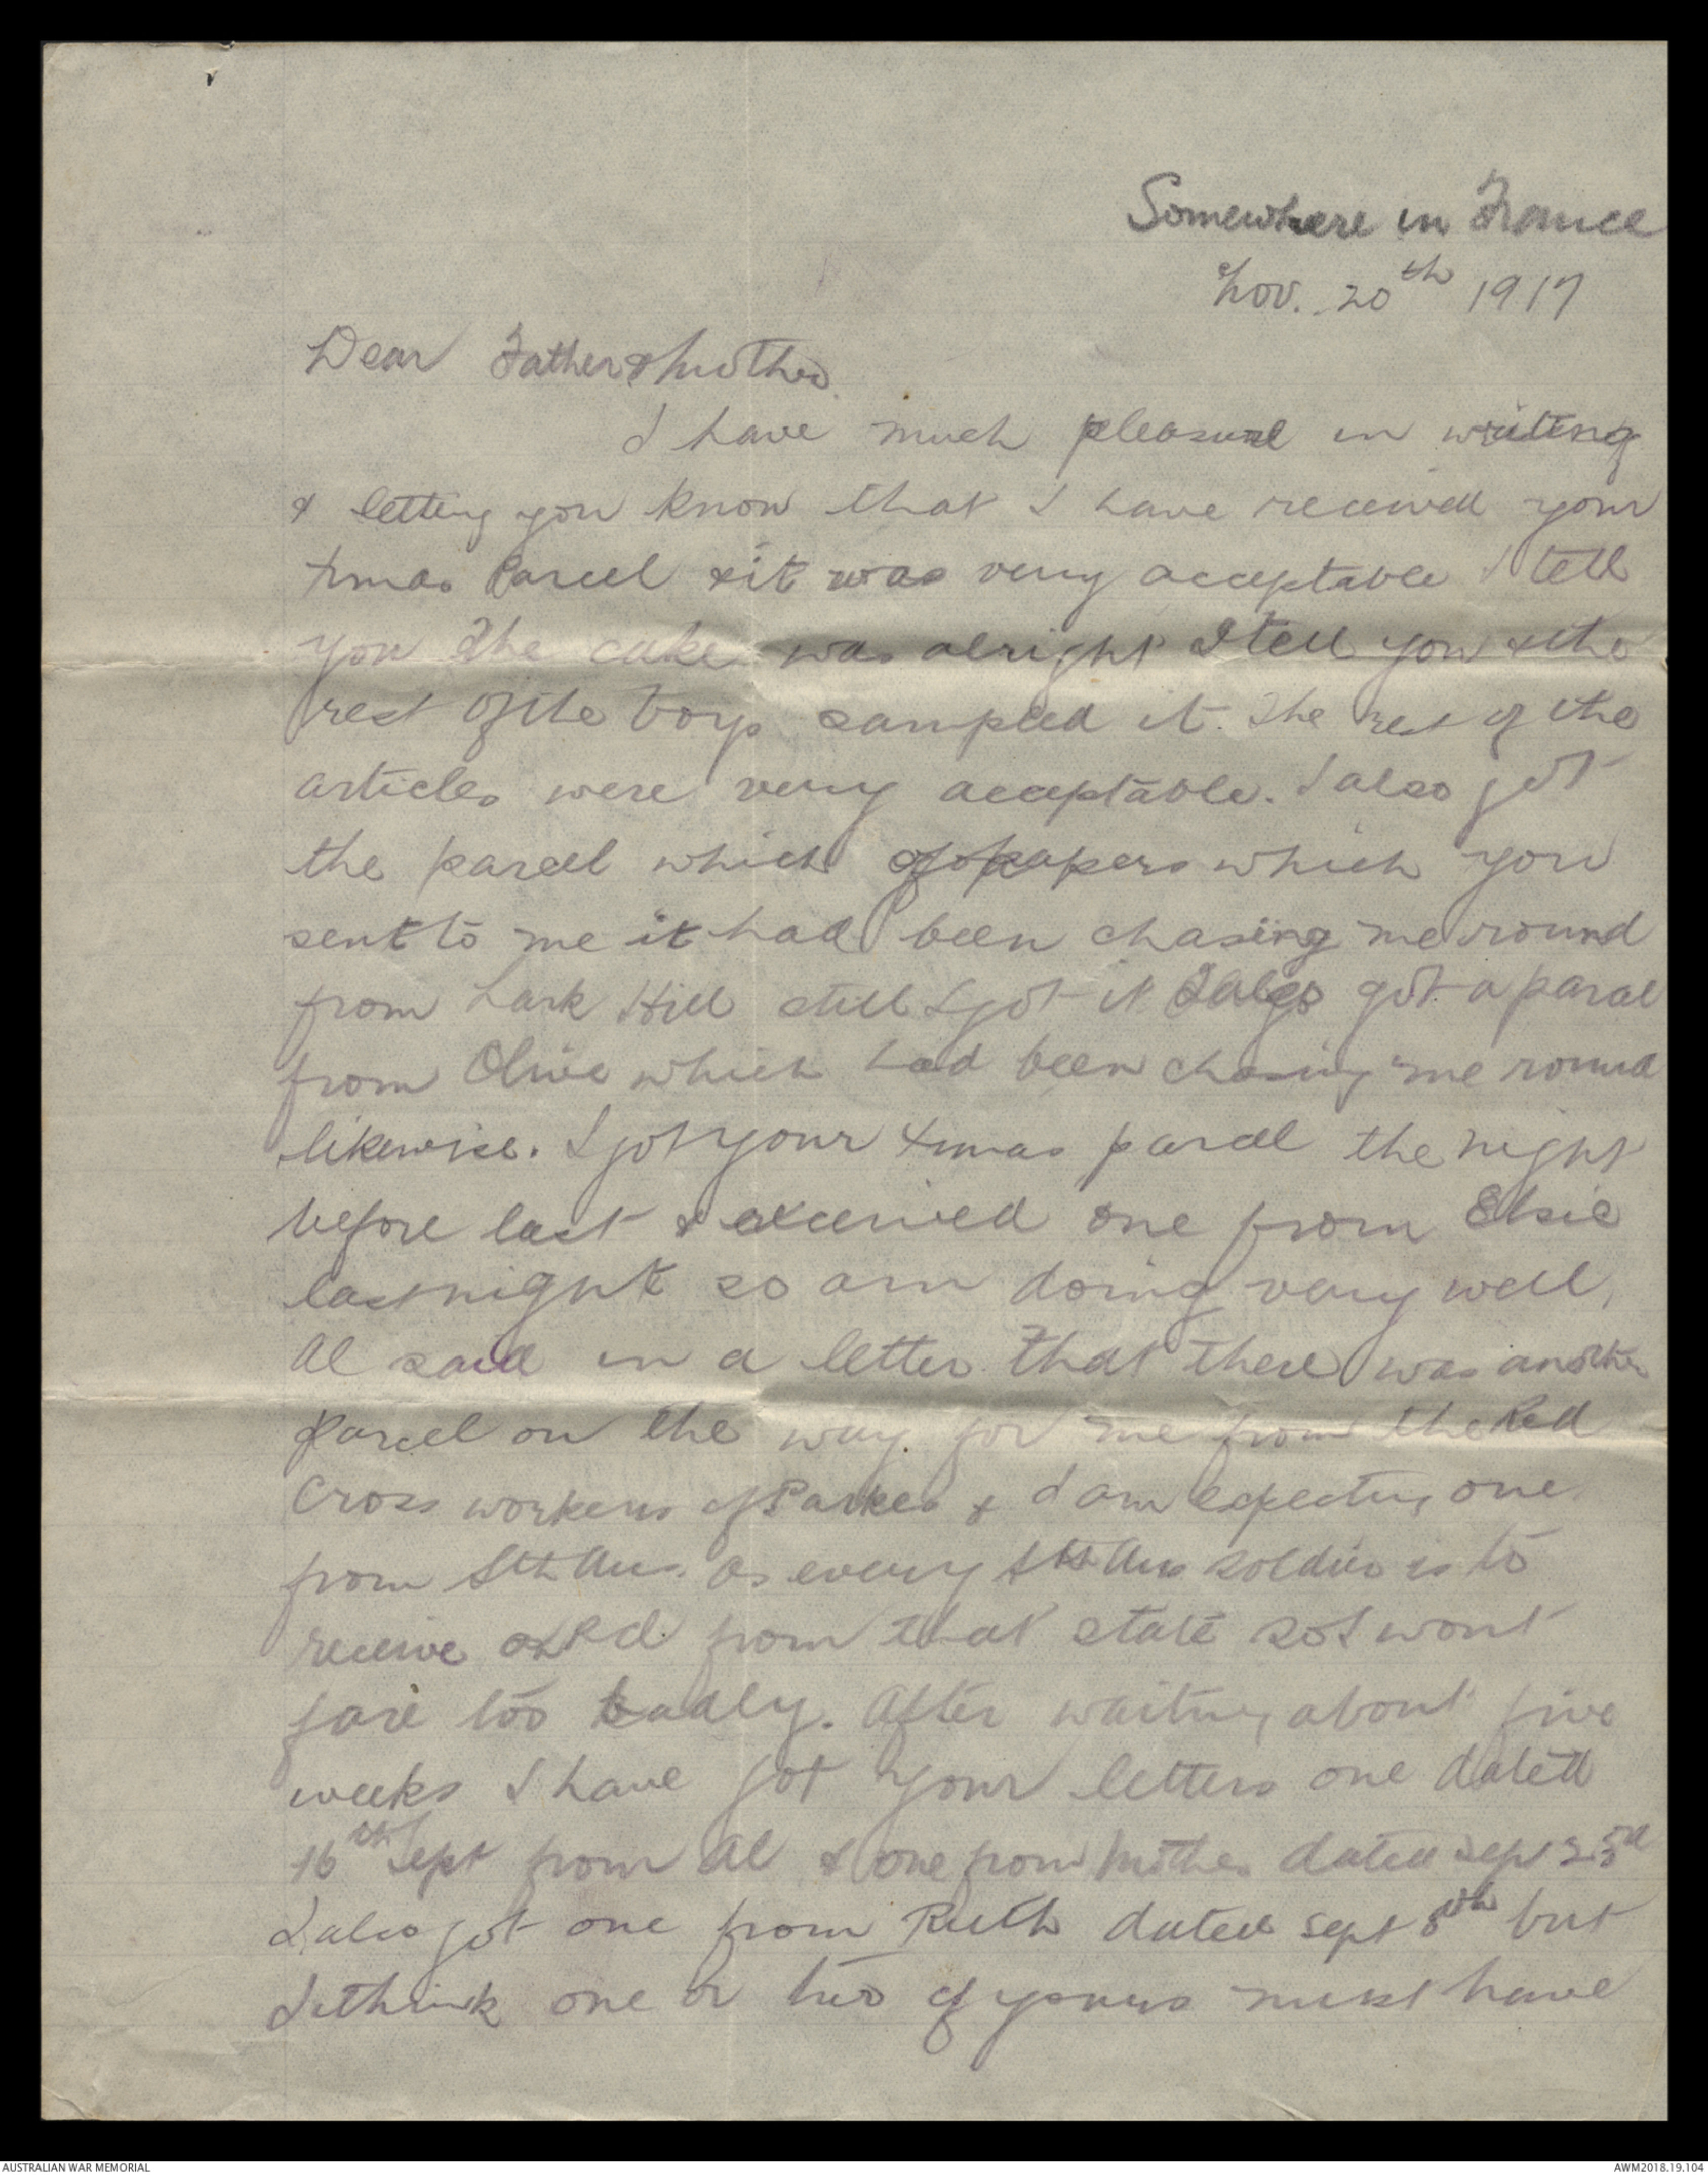 Somewhere in France
Nov. 20th 1917
Dear Father & Mother
I have much pleasure in writing
& letting you know that I have received your
Xmas Parcel & it was very acceptable I tell
you The cake was alright I tell you & the
rest of the boys sampled it. The rest of the
articles were very acceptable. I also got
the parcel which of papers which you
sent to me it had been chasing me round
from Lark Hill still I got it I also got a parcel
from Olive which had been chasing me round
likewise. I got your Xmas parcel the night
before last & received one from Elsie
last night so am doing very well,
Al said in a letter that there was another
parcel on the way for me from the Red
Cross workers of Parkes & I am expecting one
from Sth Aus. as every Sth Aus soldier is to
receive from that state so I wont
fare too badly. After waiting about five
weeks I have got your letters one dated
16th Sept from Al & one from Mother dated Sept 23rd
I also got one from Ruth dated Sept 8th but
I think one or two of yours must have
AUSTRALIAN WAR MEMORIAL
AWM2018.19.104